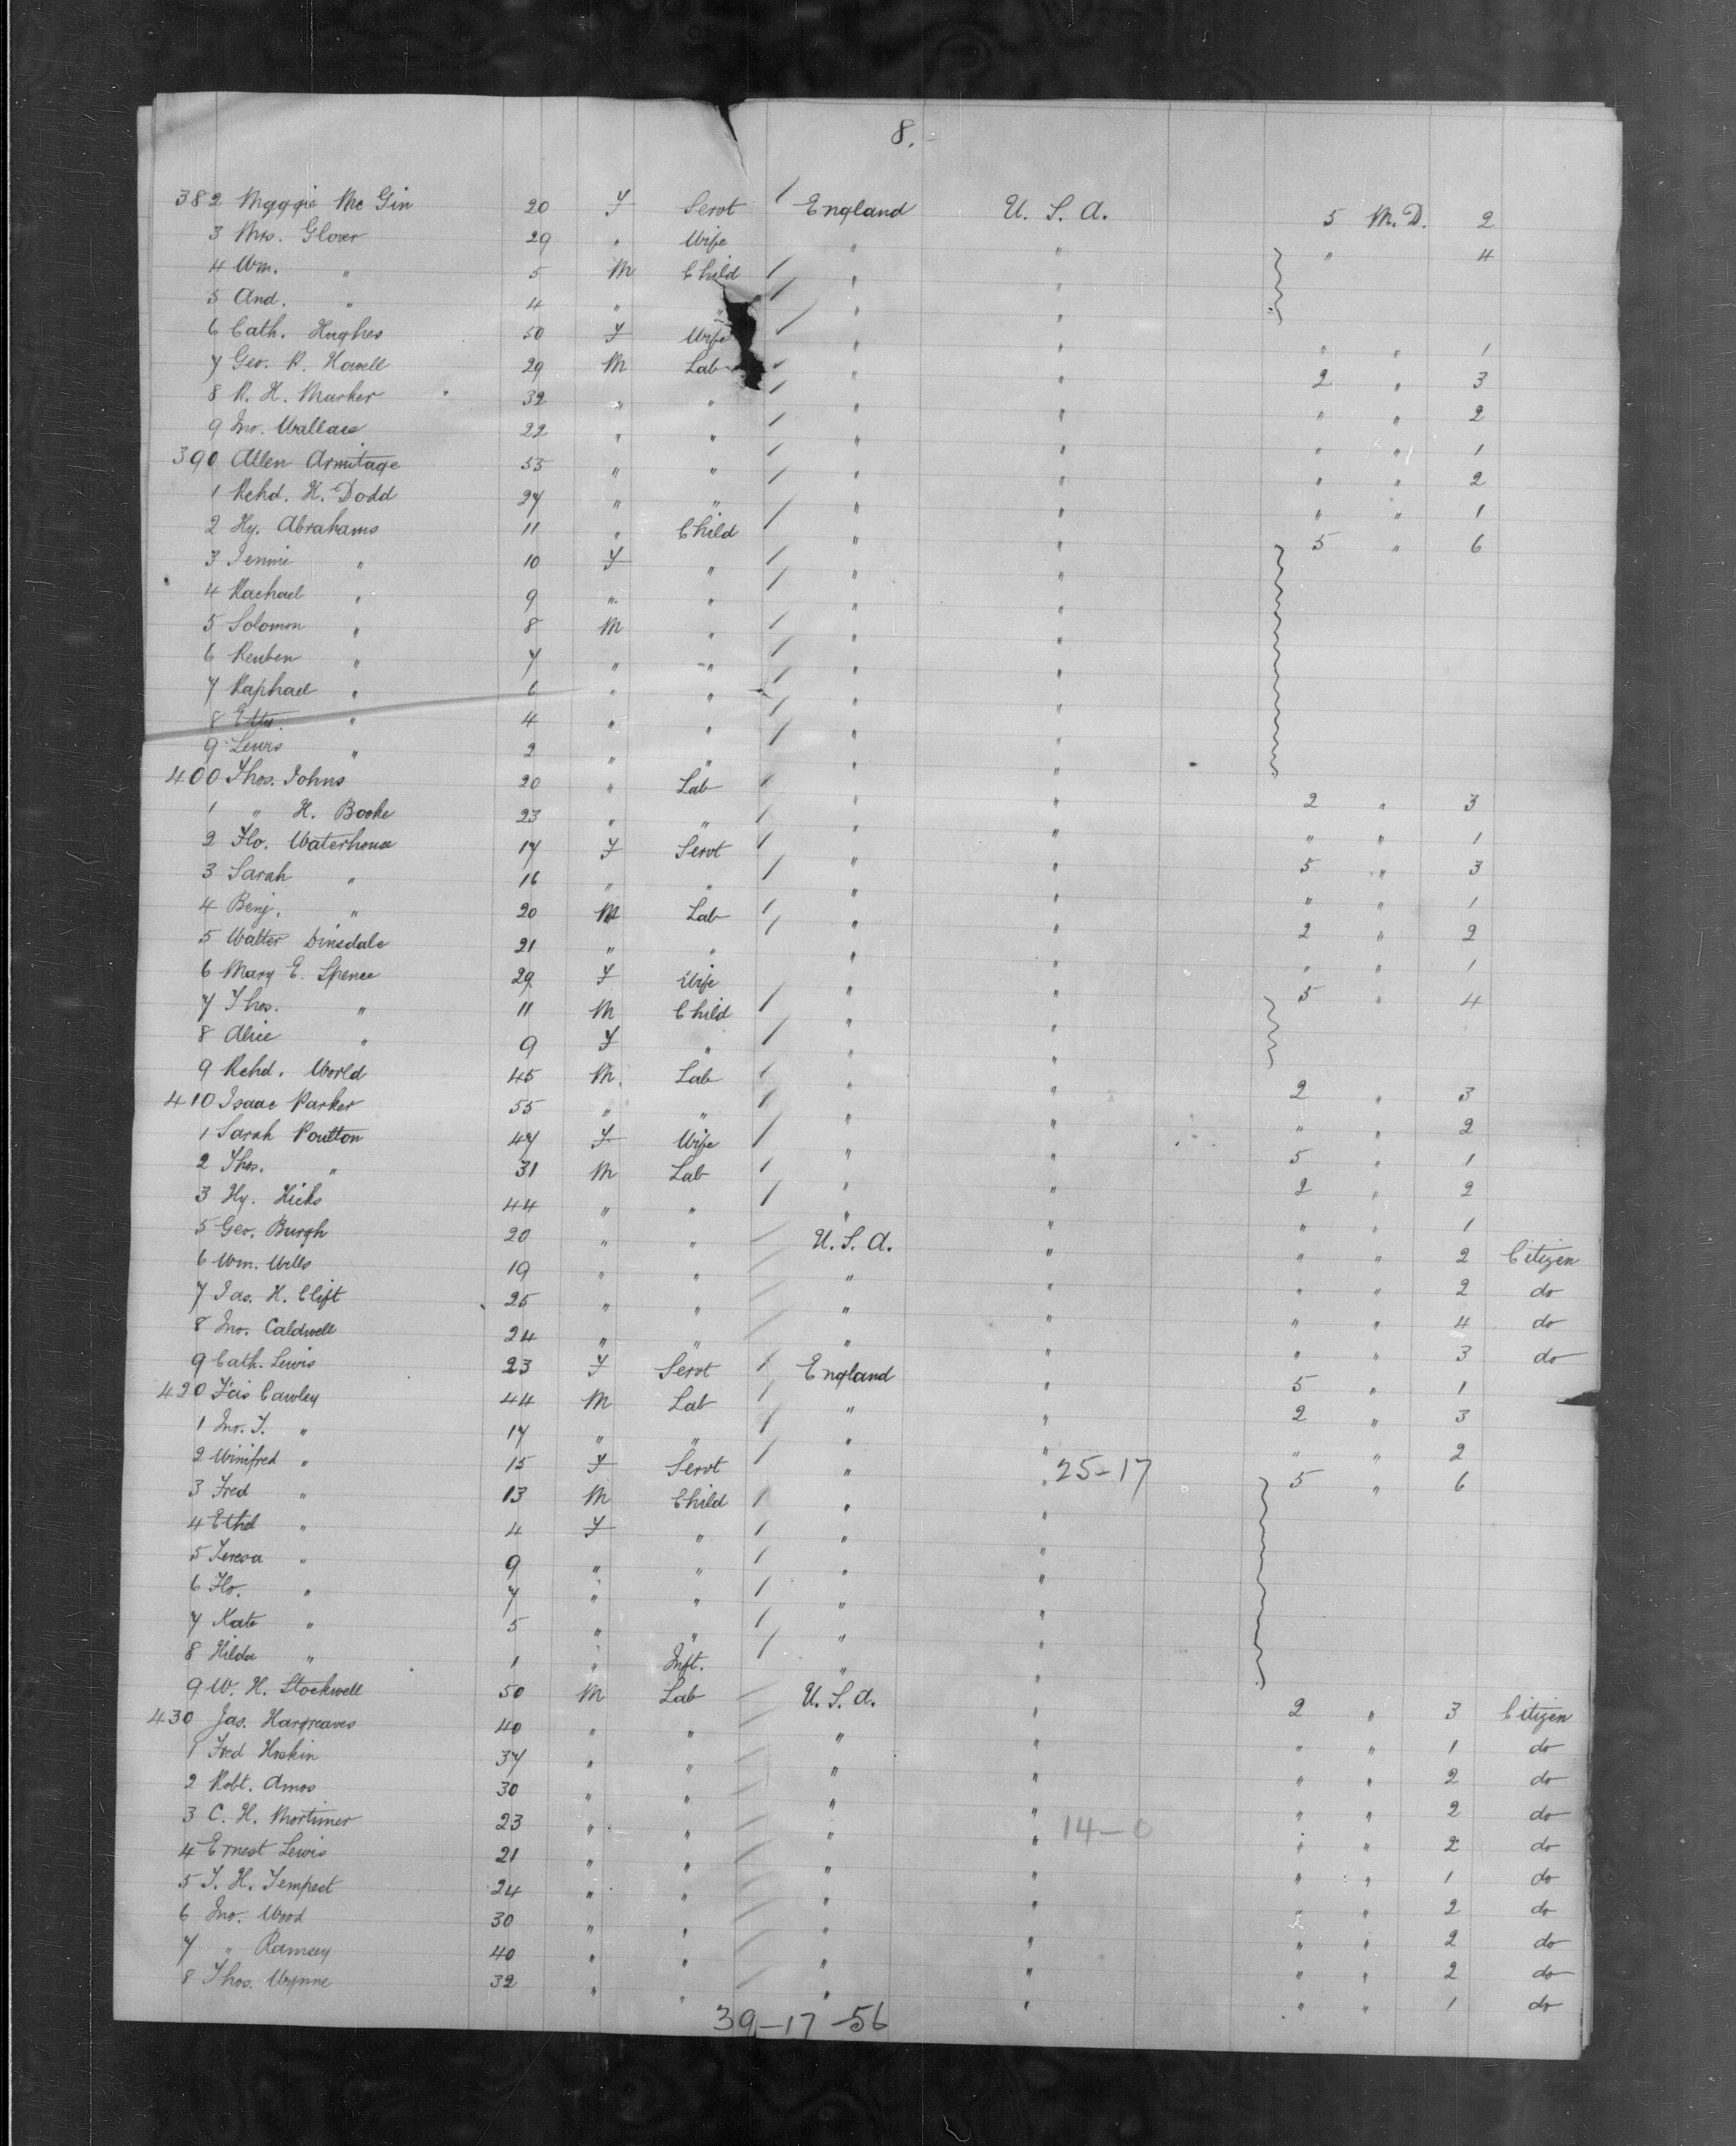 8.-
382 Maggie Mc Gin 20 F Servt / England U. S. A. 5 M. D. 2
3 Mrs. Glover 29 " Wife " " " 4
4 Wm. " 5 M Child / " "
5 And. " 4 " " / " "
6 Cath. Hughes 50 F Wife / " " " " 1
7 Geo. P. Howell 29 M Lab / " " 2 " 3
8 R. H. Marker 32 " " / " " " " 2
9 Jno. Wallace 22 " " / " " " " 1
390 Allen Armitage 53 " " / " " " " 2
1 Rchd. H. Dodd 27 " " / " " " " 1
2 Hy. Abrahams 11 " Child / " " 5 " 6
3 Jennie " 10 F " / " "
4 Rachael " 9 " " / " "
5 Solomon " 8 M " / " "
6 Reuben " 7 " " / " "
7 Raphael " 6 " " / " "
8 " 4 " " / " "
9 Lewis " 2 " " / " "
400 Thos. Johns 20 " Lab / " " 2 " 3
1 " H. Booke 23 " " / " " " " 1
2 Flo. Waterhouse 17 F Servt / " " 5 " 3
3 Sarah " 16 " " / " " " " 1
4 Benj. " 20 M Lab / " " 2 " 2
5 Walter Dinsdale 21 " " / " " " " 1
6 Mary E. Spence 29 F Wife " " 5 " 4
7 Thos. " 11 M Child / " "
8 Alice " 9 F " / " "
9 Rchd. World 45 M. Lab / " " 2 " 3
410 Isaac Parker 55 " " / " " " " 2
1 Sarah Poulton 47 F Wife / " " 5 " 1
2 Thos. " 31 M Lab / " " 2 " 2
3 Hy. Hicks 44 " " / " " " " 1
5 Geo. Burgh 20 " " / U. S. A. " " " 2 Citizen
6 Wm. Wills 19 " " / " " " " 2 do
7 Jas. H. Clift 25 " " / " " " " 4 do
8 Jno. Caldwell 24 " " / " " " " 3 do
9 Cath. Lewis 23 F Servt / England " 5 " 1
420 F'cis Cawley 44 M Lab / " " 2 " 3
1 Jno. T. " 17 " " / " " " " 2
2 Winifred " 15 F Servt / " " 25-17 5 " 6
3 Fred " 13 M Child / " "
4 Ethel " 4 F " / " "
5 Teresa " 9 " " / " "
6 Flo. " 7 " " / " "
7 Kate " 5 " " / " "
8 Hilda " 1 " Inft. / " "
9 W. H. Stockwell 50 M Lab / U. S. A. " 2 " 3 Citizen
430 Jas. Hargreaves 40 " " / " " " " 1 do
1 Fred Hoskin 37 " " / " " " " 2 do
2 Robt. Amos 30 " " / " " " " 2 do
3 C. H. Mortimer 23 " " / " " 14-0 " " 2 do
4 Ernest Lewis 21 " " / " " " " 1 do
5 T. H. Tempest 24 " " / " " " " 2 do
6 Jno. Wood 30 " " / " " " " 2 do
7 " Ramsey 40 " " / " " " " 2 do
8 Thos. Wynne 32 " " / " " " " 1 do
39-17-56